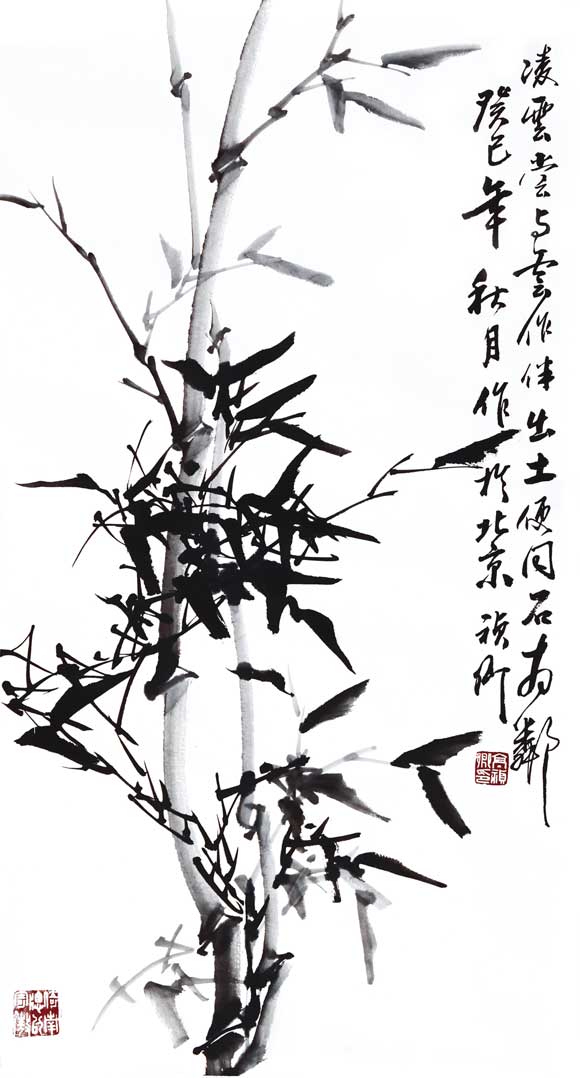 凌雲尝与雲作伴出土便同石为鄰
癸巳年秋月作於北京祯卿